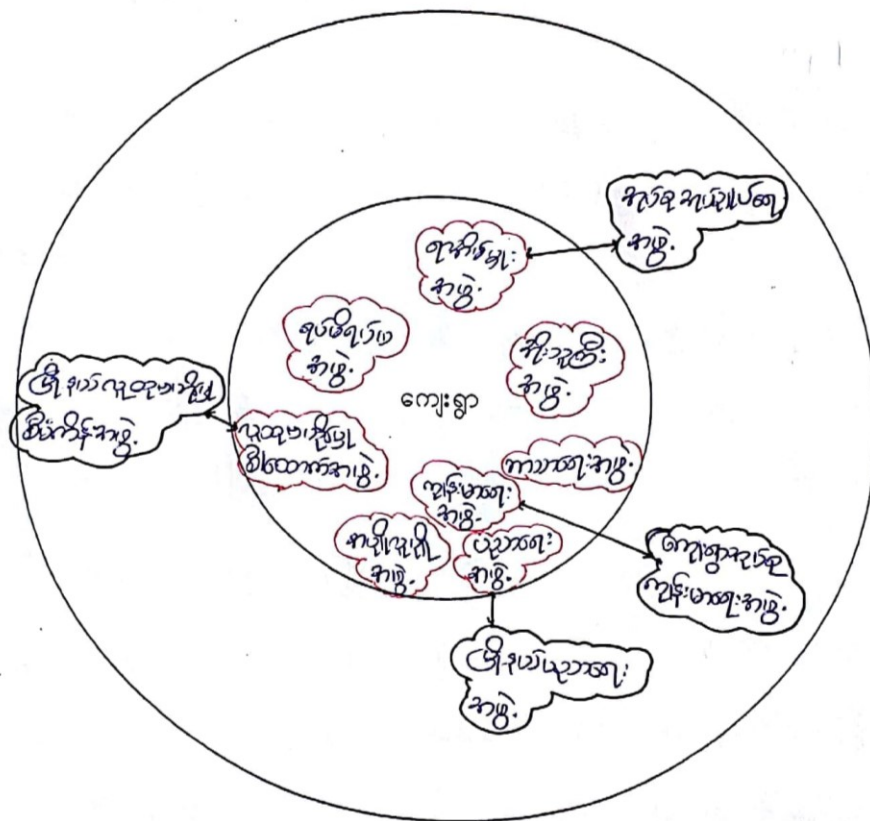 အုပ်စုအုပ်ချုပ်ရေး
အဖွဲ့
ရာအိမ်မှူး
အဖွဲ့
ရပ်မိရပ်ဖ
အဖွဲ့
ဆိုးသူကြီး
အဖွဲ့
ကျေးရွာ
မြို့နယ်လူထုဗဟိုပြု
စီမံကိန်းအဖွဲ့
လူထုဗဟိုပြု
စီးထောက်အဖွဲ့
ဘာသာရေးအဖွဲ့
ကျန်းမာရေး
အဖွဲ့
အပျိုလူပျို
အဖွဲ့
ပညာရေး
အဖွဲ့
ကျေးရွာအုပ်စု
ကျန်းမာရေးအဖွဲ့
မြို့နယ်ပညာရေး
အဖွဲ့